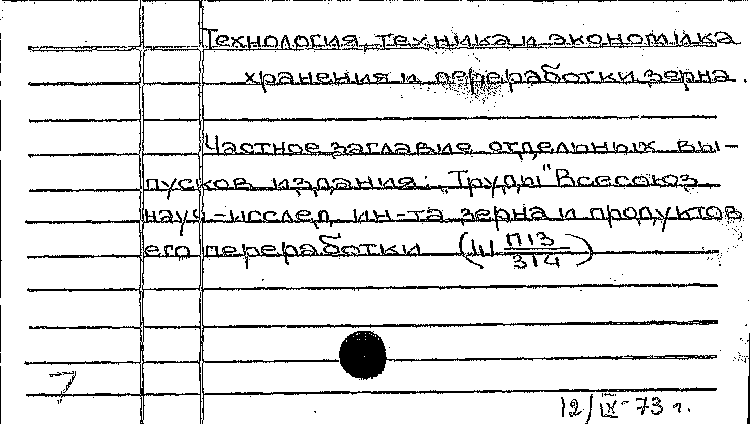 Технология, техника и экономика
хранения и переработки зерна.
Частное заглавие отдельных вы-
пусков издания: "Труды" Всесоюз.
науч-исслед. ин-та зерна и продуктов
его переработки (Ш П13/314)
7
12/IX-73 г.